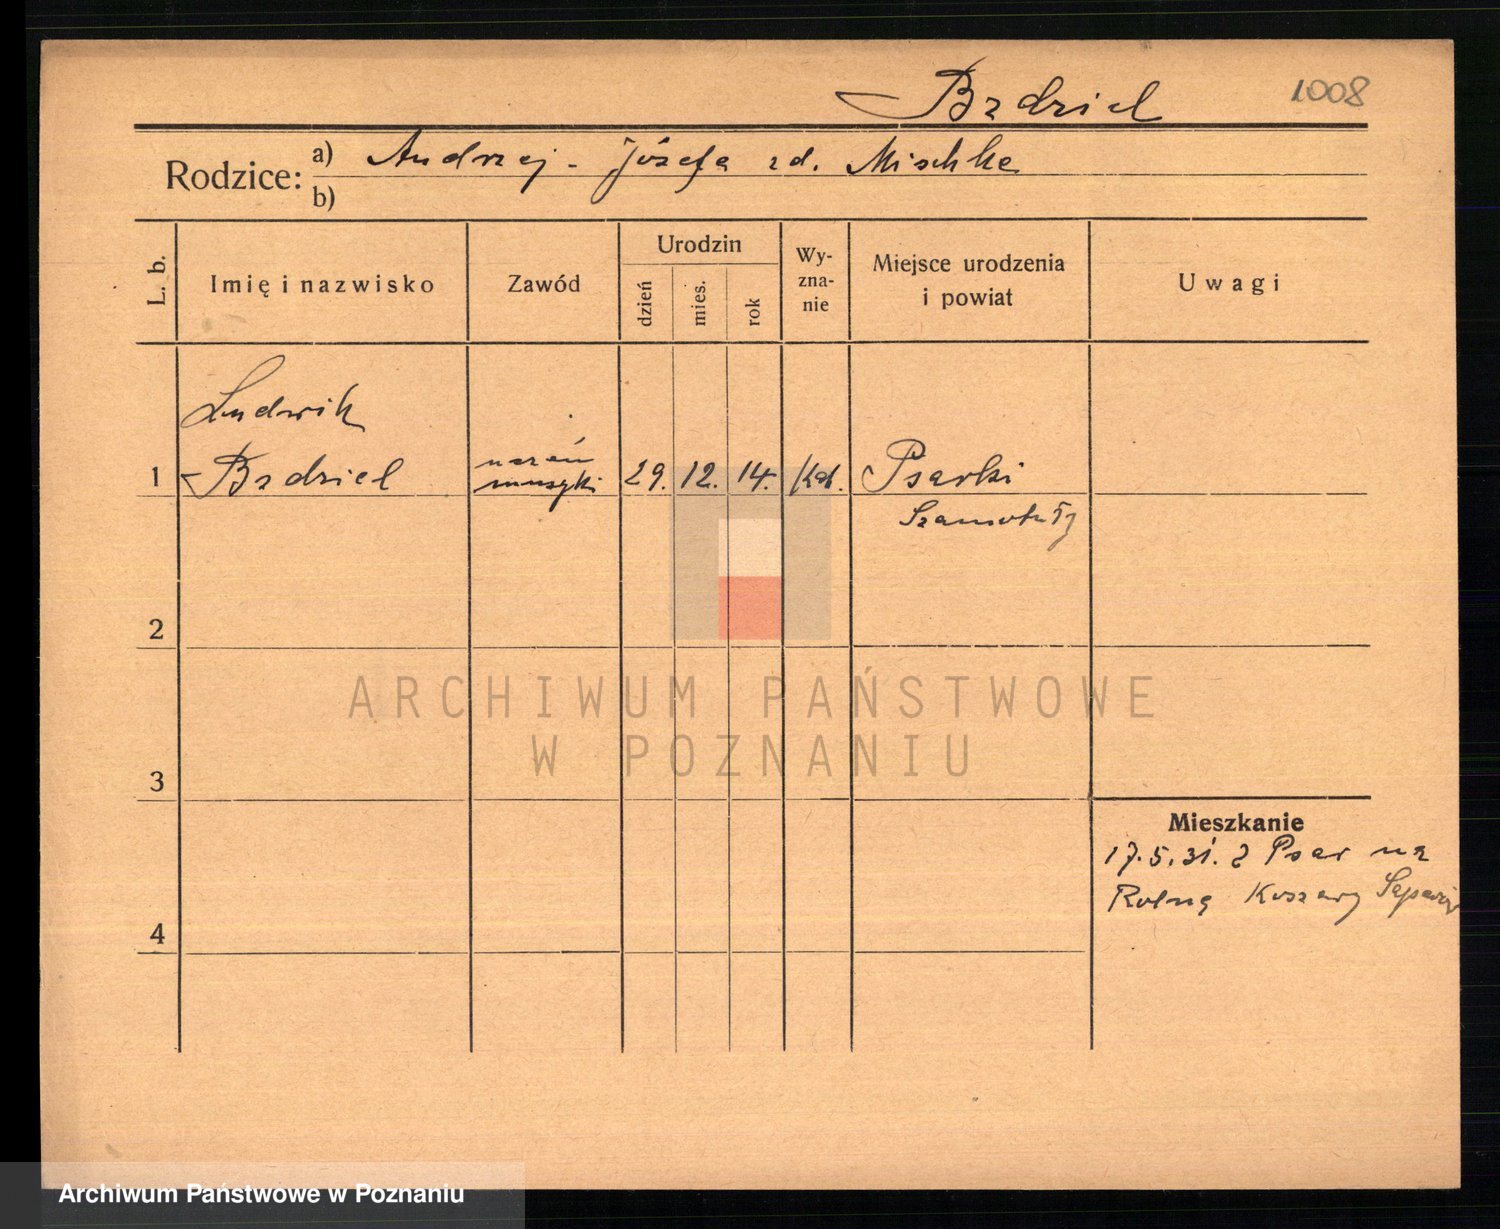 Bzdziel 1008
Rodzice: a) Andrzej - Józefa zd. Mischke
b)
L. b. Imię i nazwisko Zawód Urodzin dzień mies. rok Wyznanie Miejsce urodzenia i powiat Uwagi
Ludwik
1 Bzdziel uczeń muzyki 29. 12. 14. kat. Psarki
Szamotuły
2
3
Mieszkanie
17.5.31. z Psar na
Rolną Koszary
4
ARCHIWUM PAŃSTWOWE
W POZNANIU
Archiwum Państwowe w Poznaniu